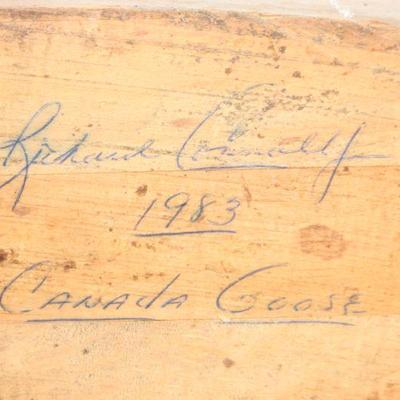 Richard Connolly
1983
CANADA GOOSE